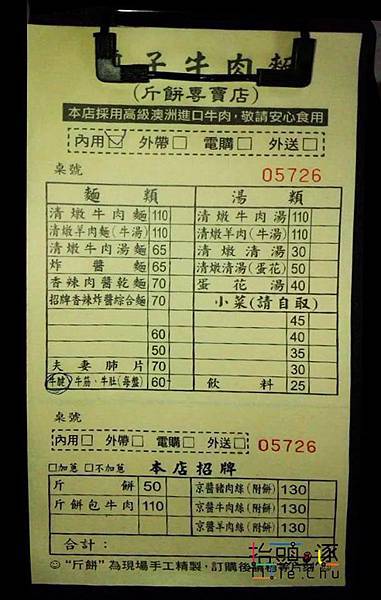 子牛肉麵
(斤餅專賣店)
本店採用高級澳洲進口牛肉，敬請安心食用
內用☑ 外帶□ 電購□ 外送□
桌號 05726
麵類 湯類
清燉牛肉麵 110 清燉牛肉湯 110
清燉羊肉麵(牛湯) 110 清燉羊肉(牛湯) 110
清燉牛肉湯麵 65 清燉清湯 30
炸醬麵 65 清燉清湯(蛋花) 50
香辣肉醬乾麵 70 蛋花湯 40
招牌香辣炸醬綜合麵 70 小菜(請自取)
45
60 40
50 35
夫妻肺片 70 30
牛腱、牛筋、牛肚(每盤) 60 飲料 25
桌號
內用□ 外帶□ 電購□ 外送□ 05726
□加蔥 □不加蔥 本店招牌
斤餅 50 京醬豬肉絲(附餅) 130
斤餅包牛肉 110 京醬牛肉絲(附餅) 130
京醬羊肉絲(附餅) 130
合計：
☺"斤餅"為現場手工精製，訂購後請稍等片刻
抬頭 逐
Te.Chu